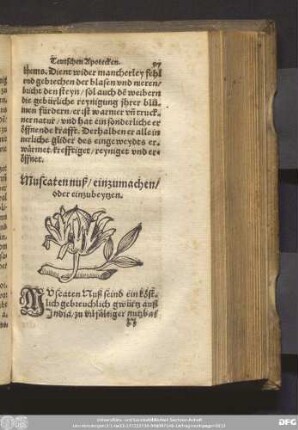 Teutschen Apotecken. 97
thems. Dient wider mancherley fehl
vnd gebrechen der blasen vnd nieren/
bricht den steyn/ sol auch dẽ weibern
die gebürliche reynigung jhrer blů-
men fürdern/ er ist warmer vñ truck-
ner natur/ vnd hat ein sonderliche er
öffnende krafft. Derhalben er alle in
nerliche glider des eingeweyds er-
wärmet/ krefftiget/ reyniget vnd er-
öffnet.
Muscaten nuß/ einzumachen/
oder einzubeytzen.
MVscaten Nuß seind ein köst-
lich gebreuchlich gwürtz auß
India/ zu vilfältiger nutzbar
DFG